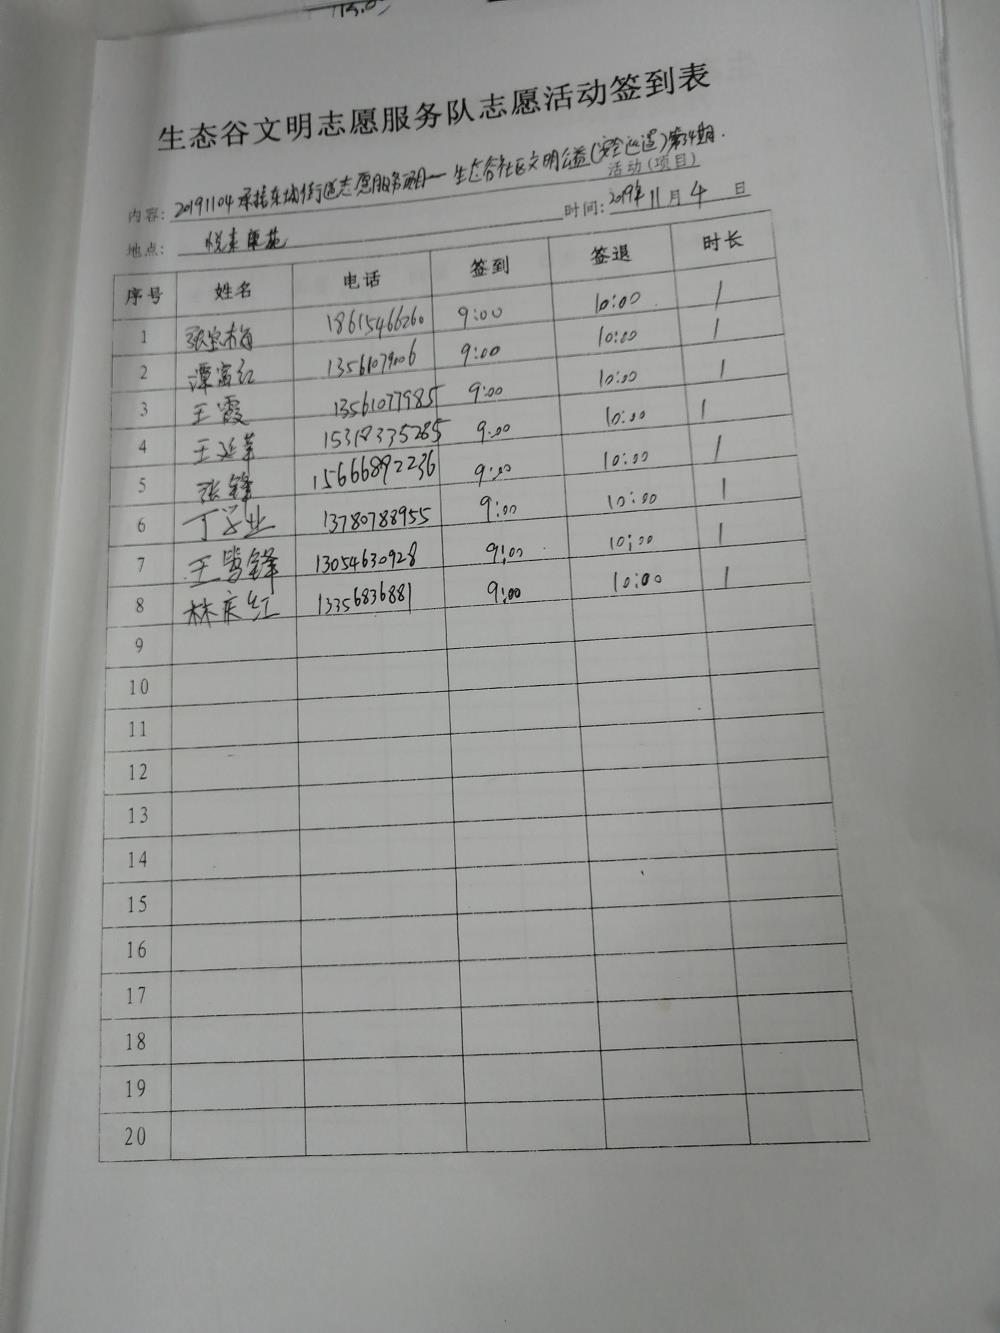 生态谷文明志愿服务队志愿活动签到表
内容: 20191104承接东城街道志愿服务项目一生态谷社区文明公益(安全巡逻)第34期.
活动(项目)
地点: 悦来 时间: 2019年11月4日
序号 姓名 电话 签到 签退 时长
1 张宝梅 18615466260 9:00 10:00 1
2 谭富红 1356107906 9:00 10:00 1
3 王霞 13561077985 9:00 10:00 1
4 王延 15318335285 9:00 10:00 1
5 张锋 15666892236 9:00 10:00 1
6 丁学业 13780788955 9:00 10:00 1
7 王雪锋 13054630928 9:00 10:00 1
8 林庆红 13356836881 9:00 10:00 1
9
10
11
12
13
14
15
16
17
18
19
20